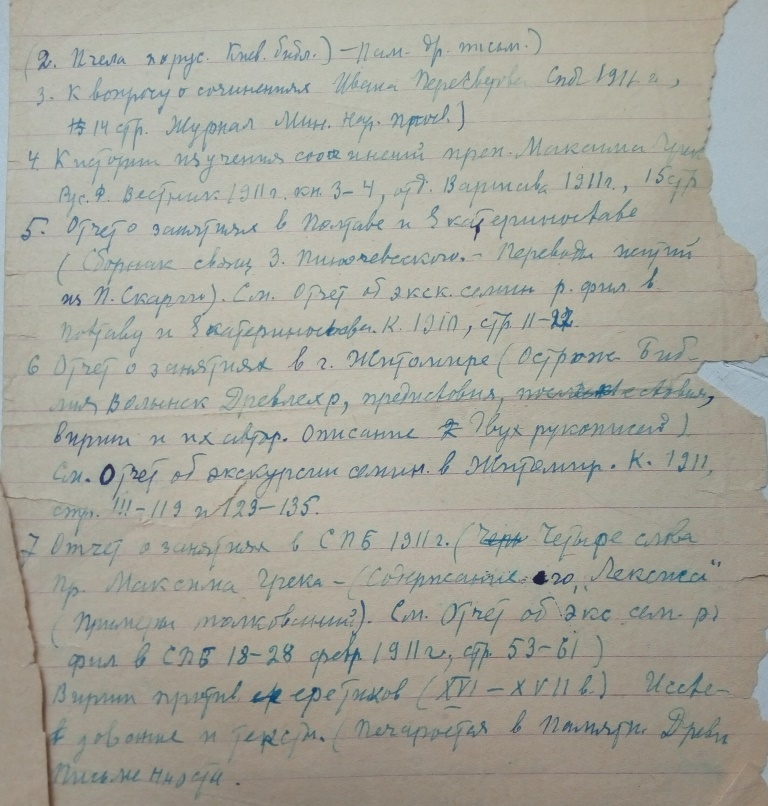 (2. Пчела по рус. Киев. библ.) – Пам. др. письм.)
3. К вопросу о сочинениях Ивана Пересветова Спб 1911 г.,
14 стр. Журнал Мин. Нар. Просв.)
4. К истории изучения сочинений преп. Максима Грека
Рус. Ф. Вестник 1911 г. кн. 3–4, отд. Варшава 1911 г., 15 стр
5. Отчет о занятиях в Полтаве и Екатеринославе
(Сборник свящ. З. – Переводы житий
из П. Скарги). См. Отчет об экск. семин р. фил. в
Полтаву и Екатеринослав. К. 1911, стр. 11–22.
6 Отчет о занятиях в г. Житомире (Острож. Биб-
лия Волынск Древлехр, предисловия, послесловия,
вирши и их автор. Описание двух рукописей)
См. Отчет об экскурсии семин. в Житомир. К. 1911,
стр. 111–119 и 129–135.
7 Отчет о занятиях в СПБ 1911 г. (Четыре слова
пр. Максима Грека – (Содержание его „Лексиса“
(Примеры толкований). См. Отчет об экс. сем. р
фил в СПБ 18–28 февр 1911 г., стр 53–61)
Вирши против еретиков (XVI – XVII в.) Иссле-
дование и тексты. (Печатается в Памятн. Древн
Письменности.